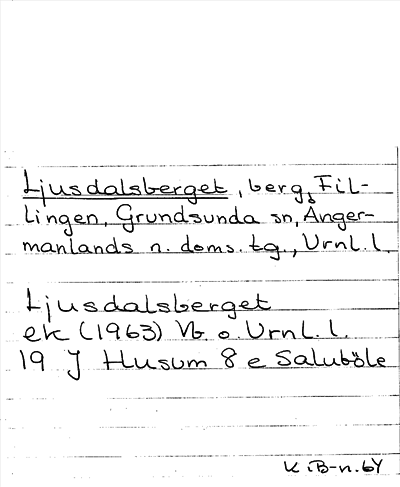 Ljusdalsberget, berg, Fil-
lingen, Grundsunda sn, Ånger-
manlands n. doms. tg., Vrnl. l.
Ljusdalsberget
ek (1963) Vb. o. Vrnl. l.
19 J Husum 8 e Saluböle
K. iB-n. 64